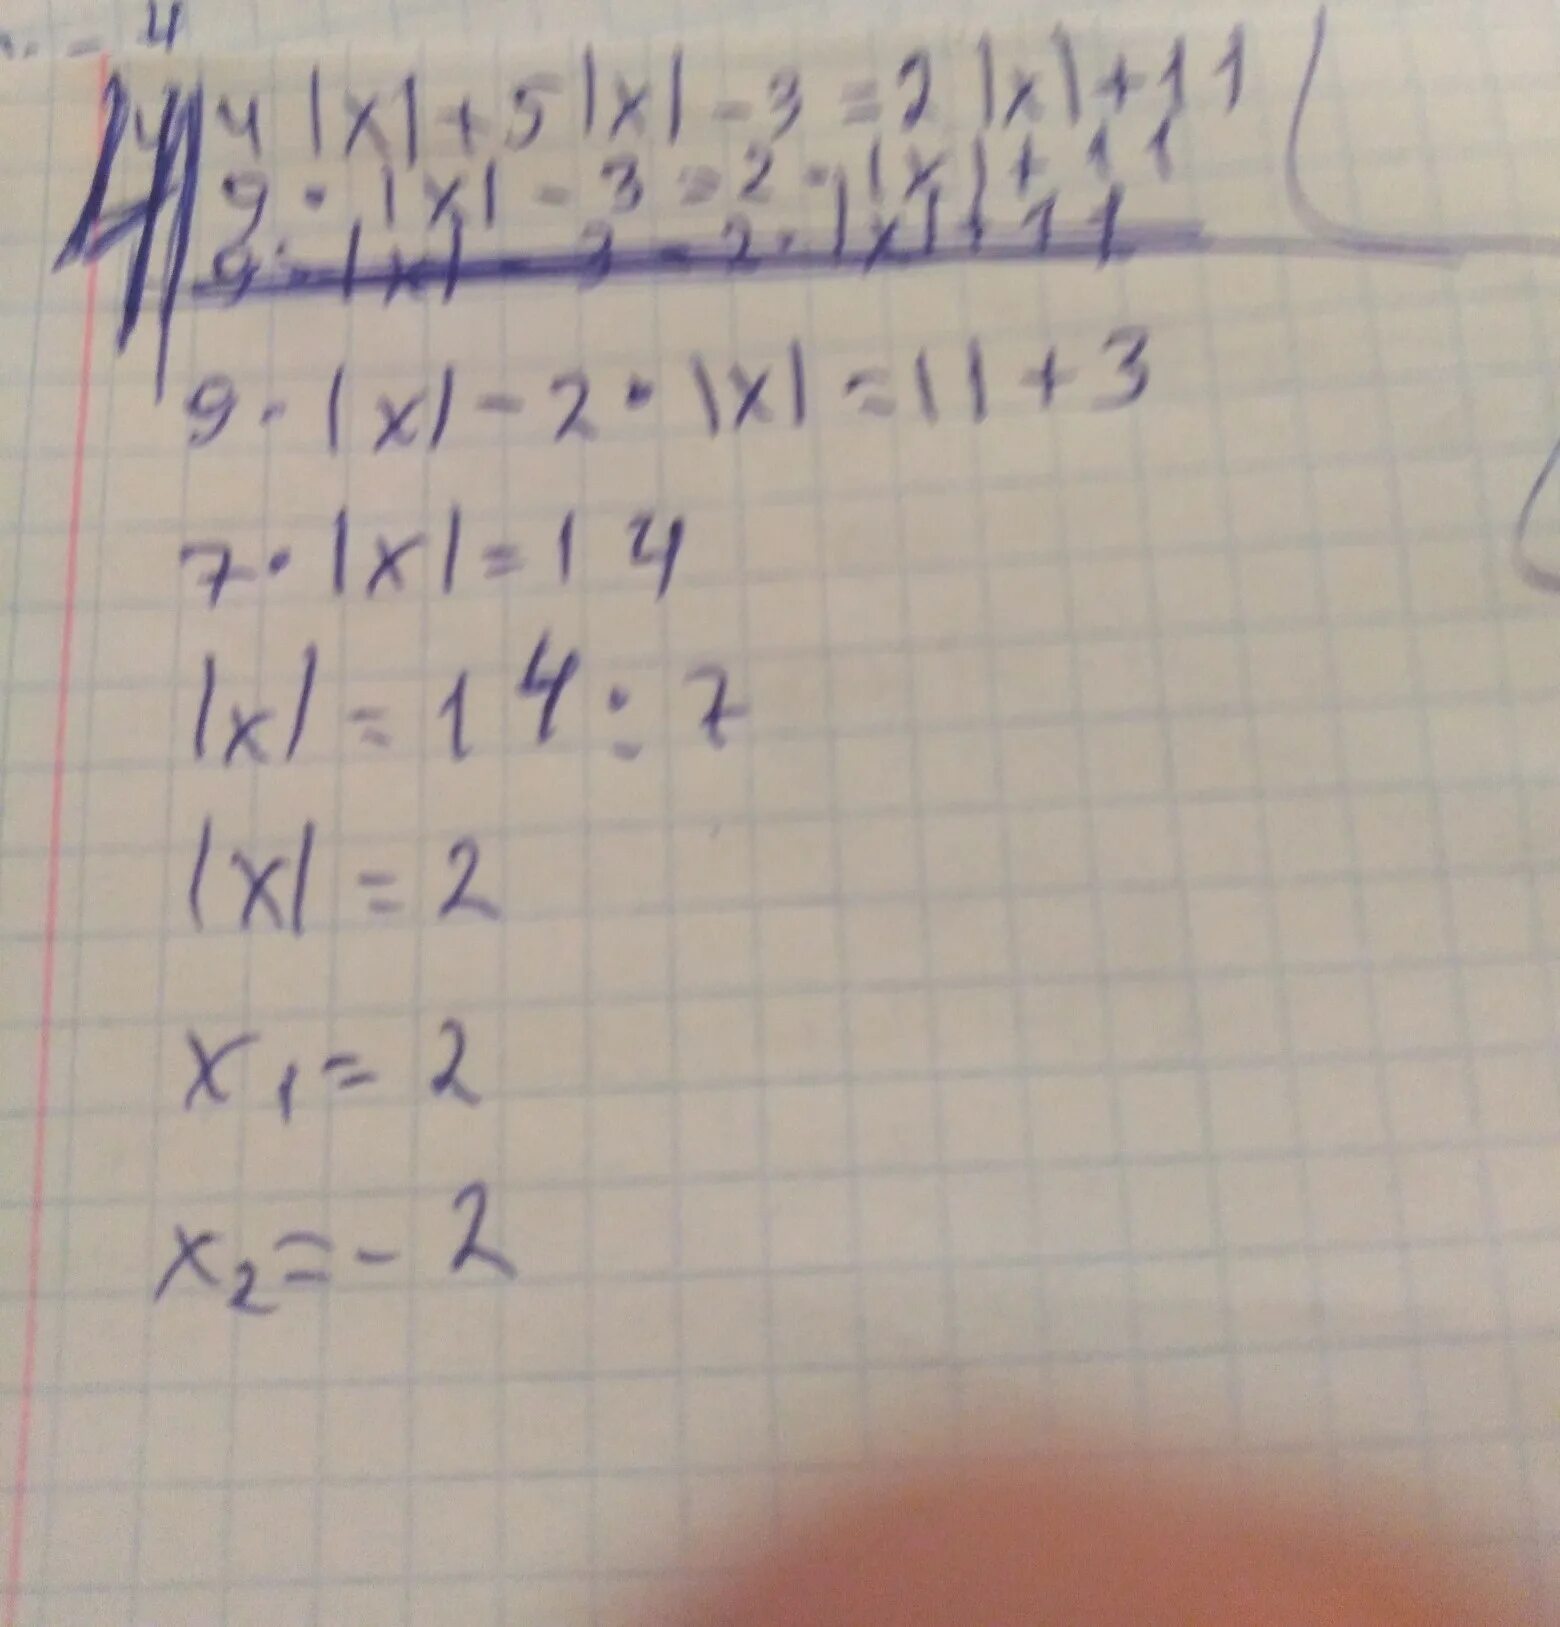 - 4
4 |x| + 5 |x| - 3 = 2 |x| + 11
9 · |x| - 3 = 2 · |x| + 11
9 · |x| - 3 = 2 · |x| + 11
9 · |x| - 2 · |x| = 11 + 3
7 · |x| = 14
|x| = 14 : 7
|x| = 2
x₁ = 2
x₂ = - 2